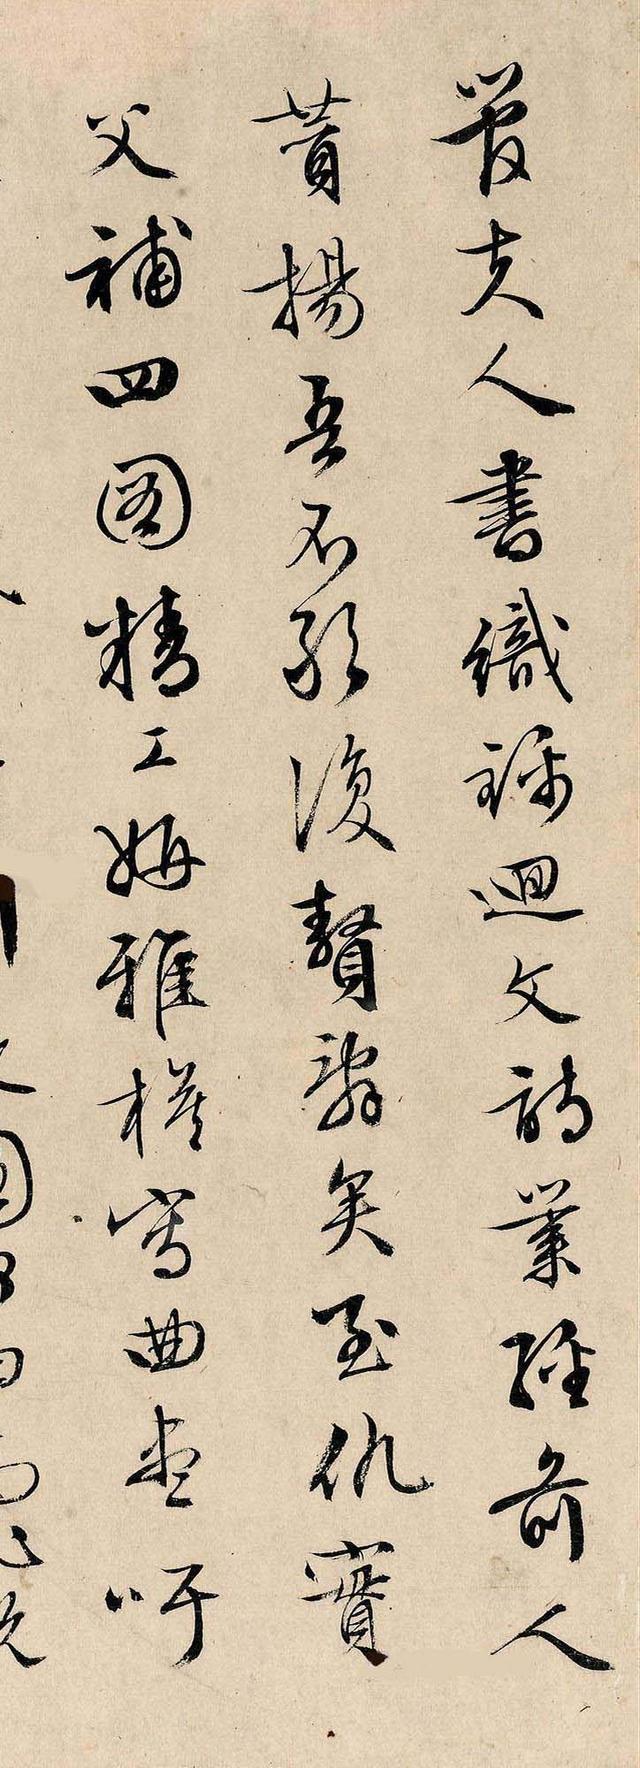 管夫人書織錦迴文詩業經前人
贊揚吾不敢復贅辭矣至仇實
父補四圖精工娟雅摹寫曲盡吁